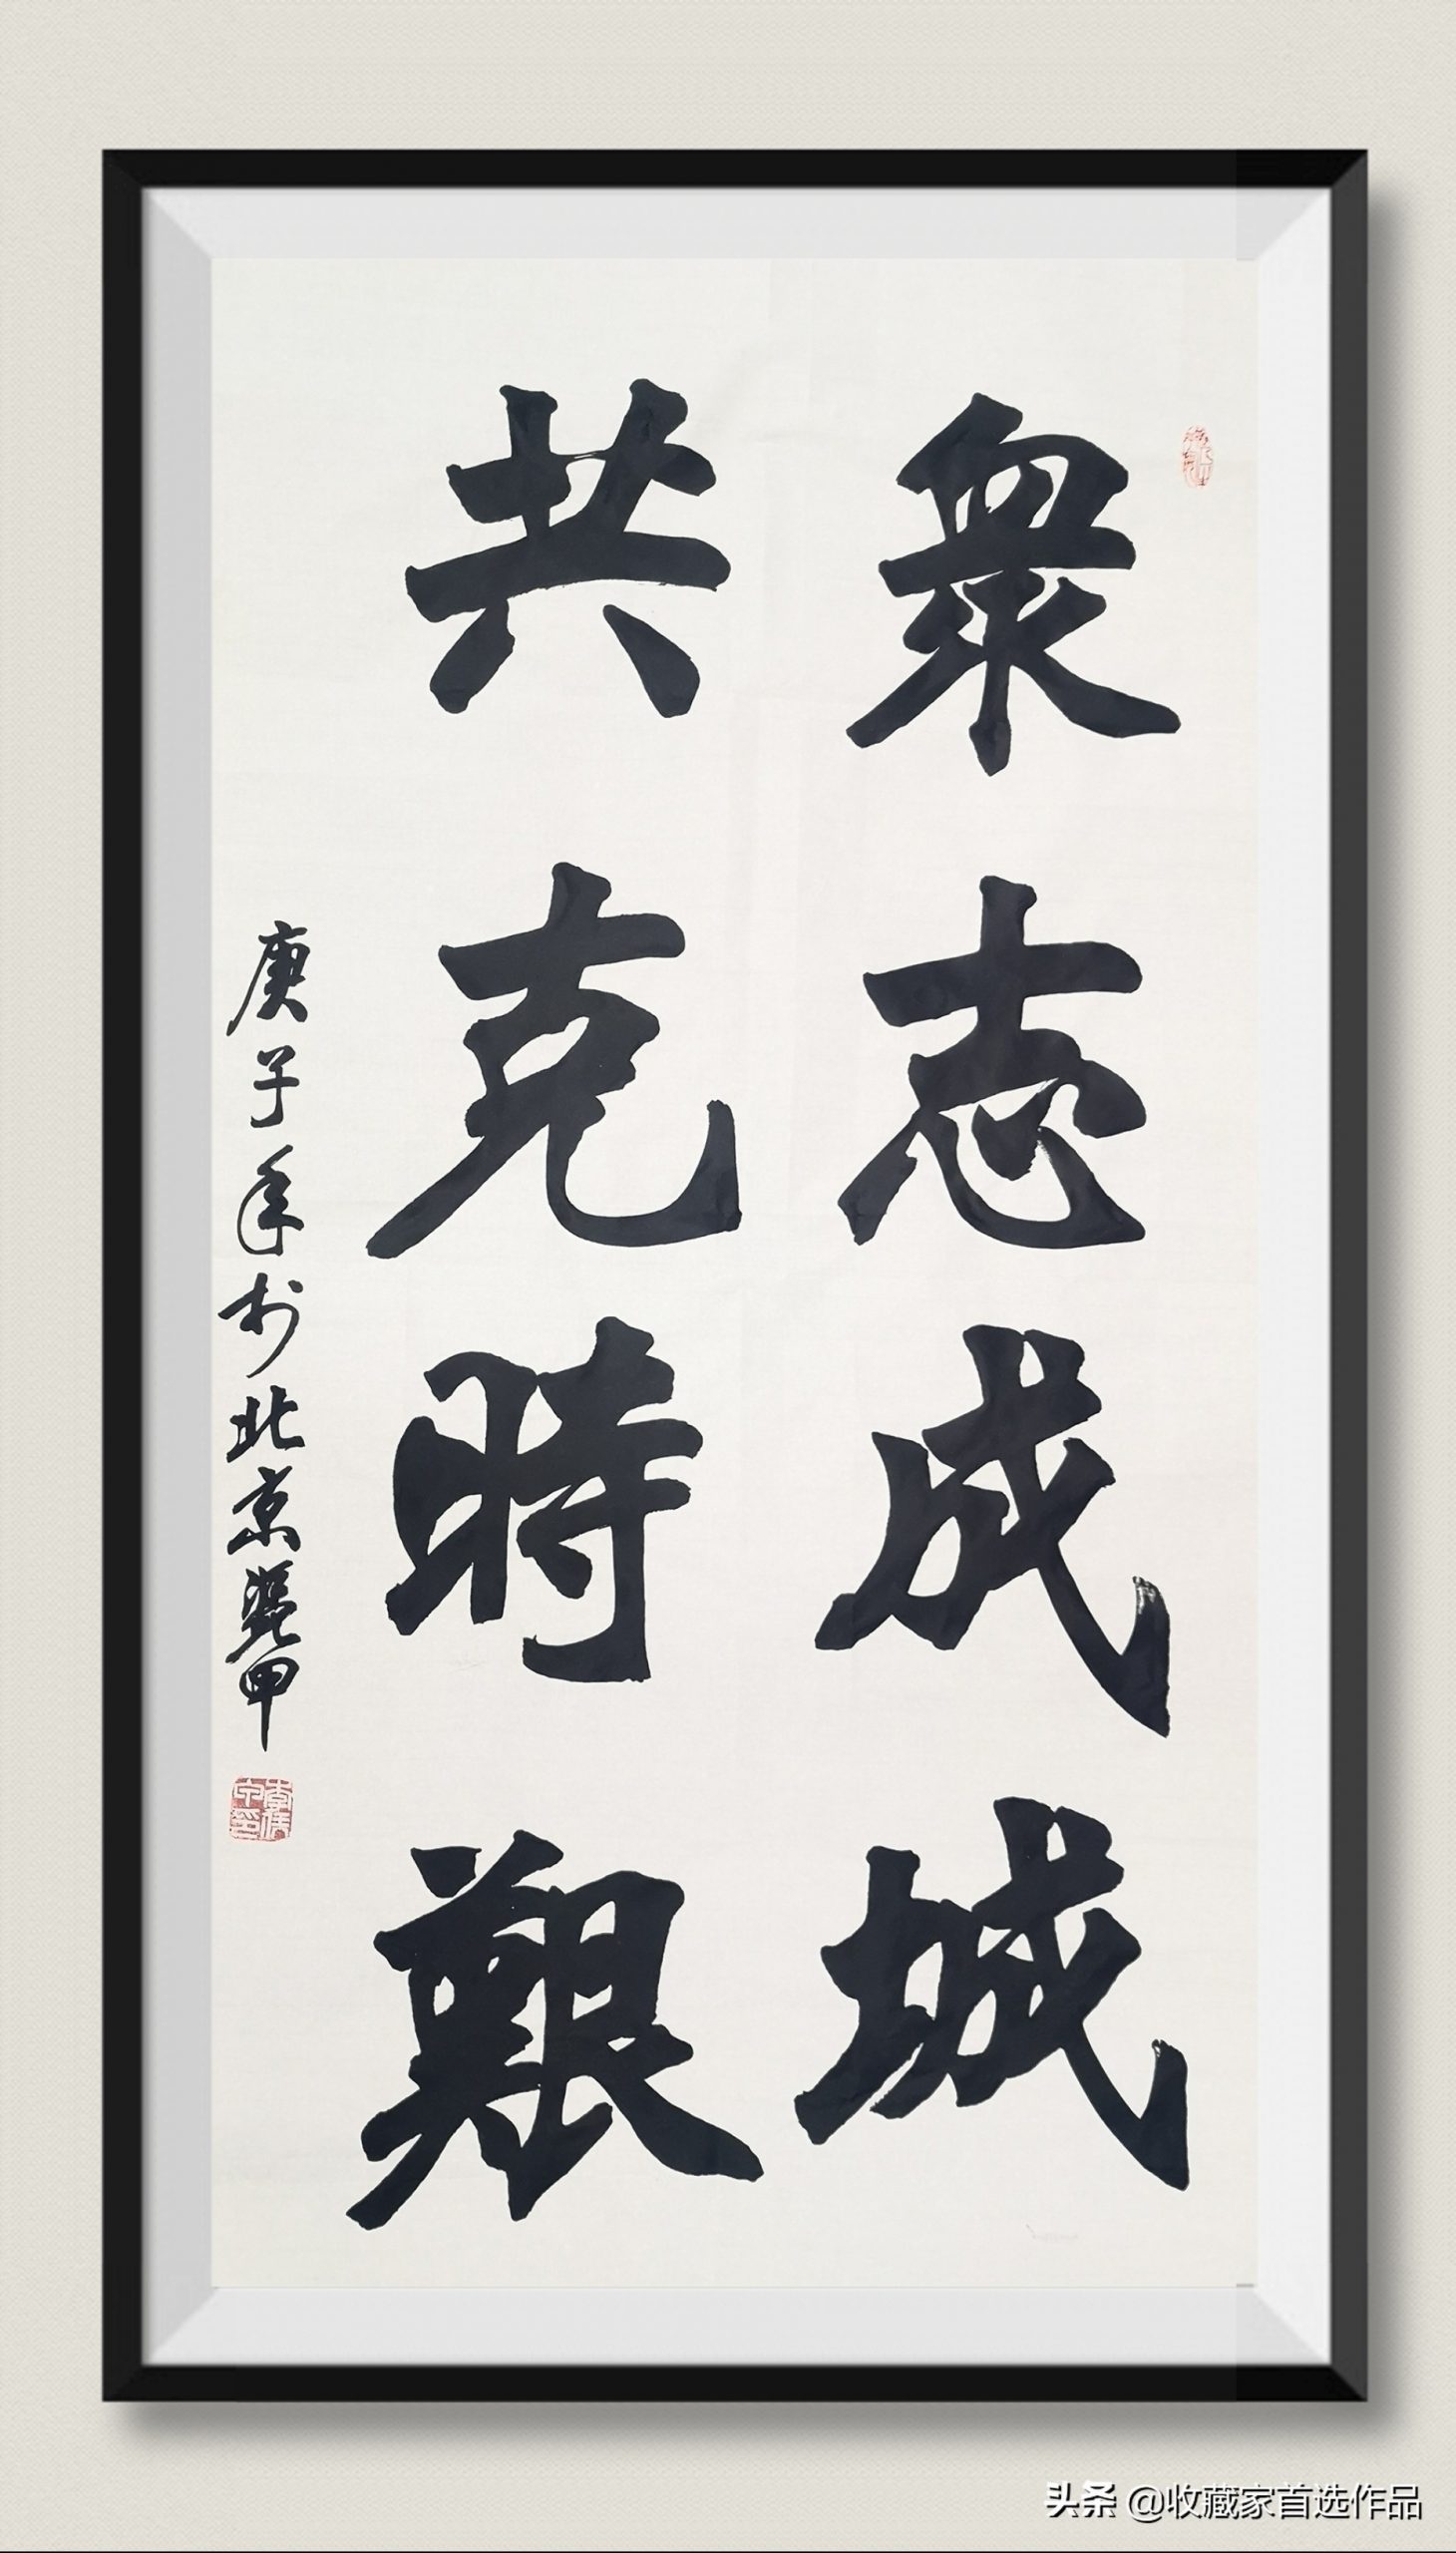 衆志成城
共克時艱
庚子年於北京
甲
头条 @收藏家首选作品